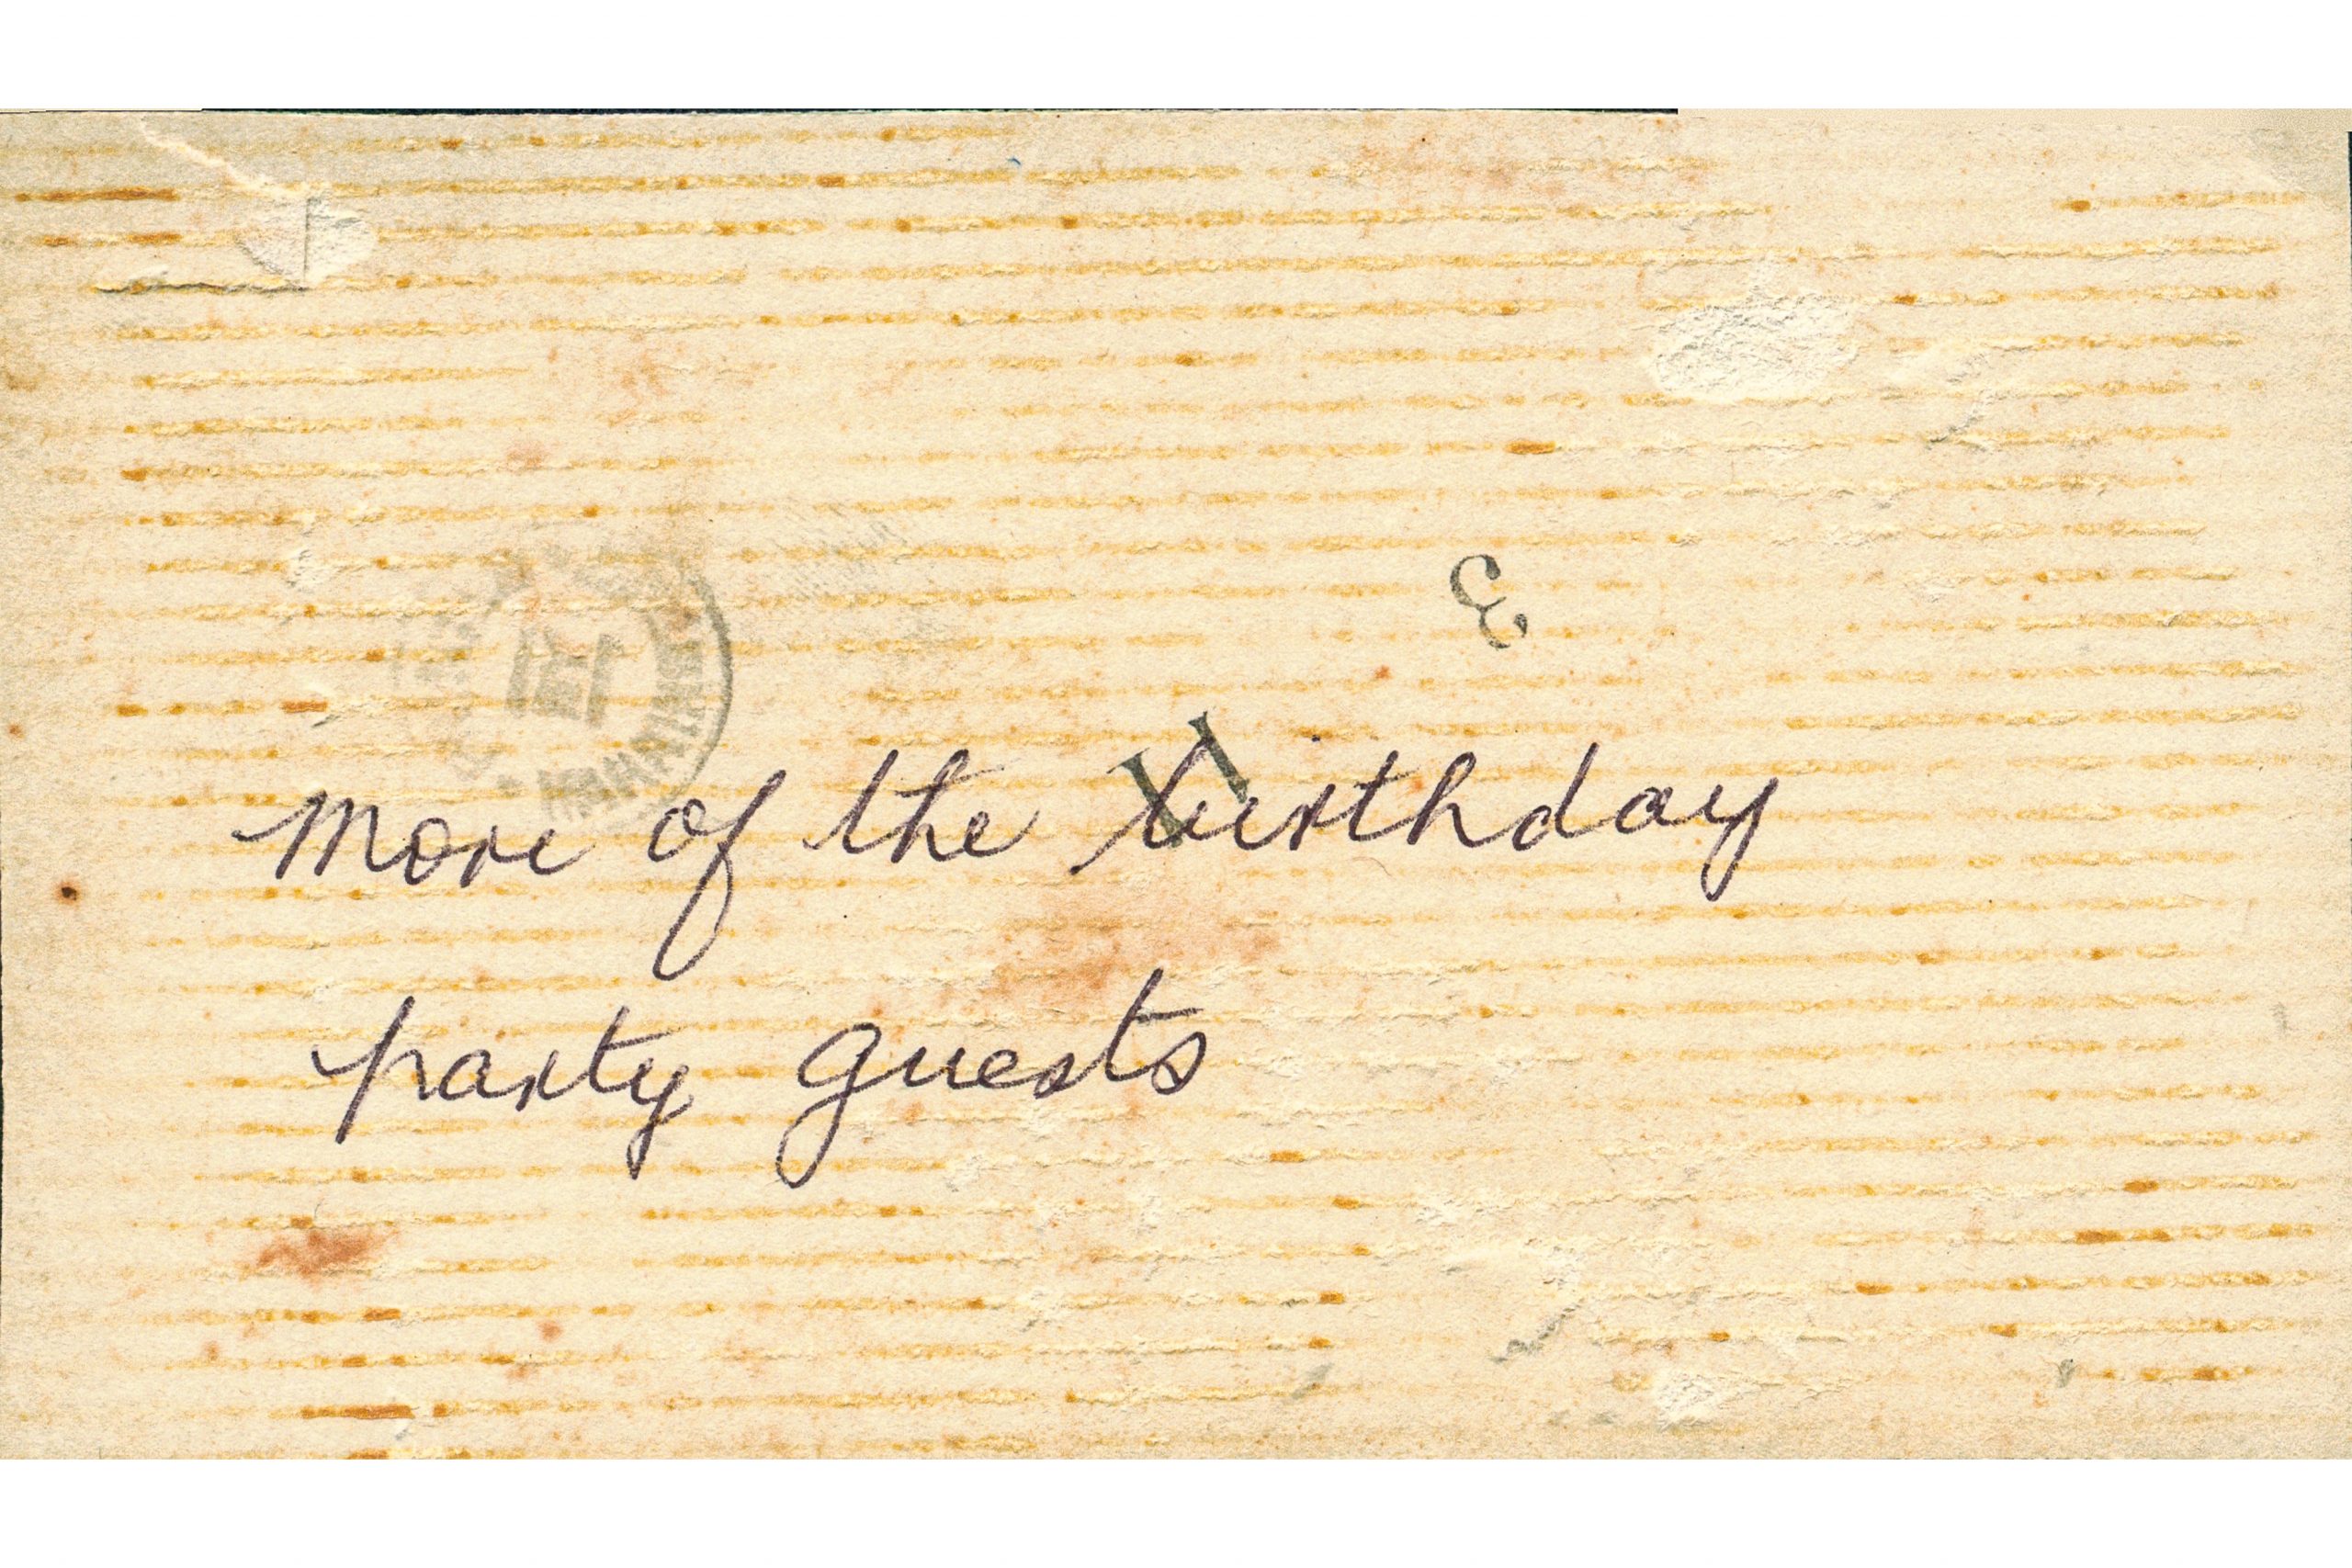 more of the birthday
party guests